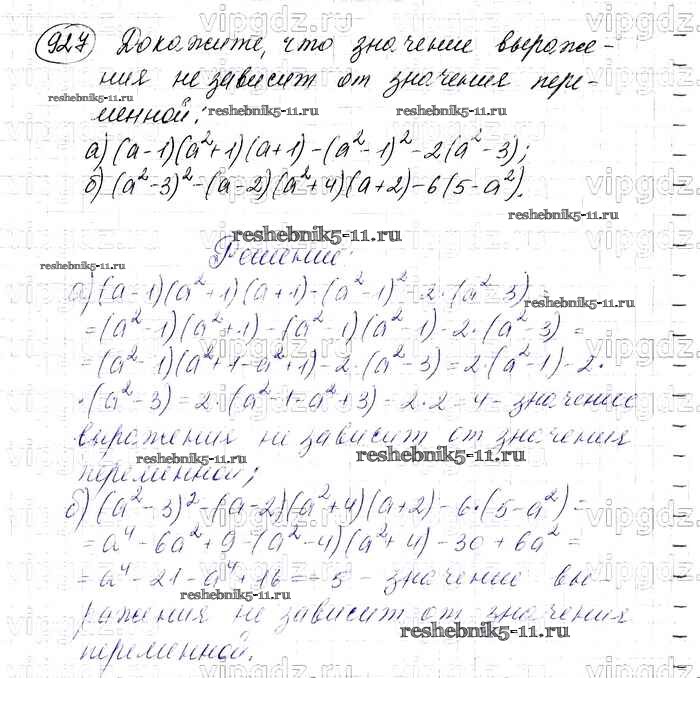 927 Докажите, что значение выраже-
ния не зависит от значения пере-
менной:
а) (a-1)(a²+1)(a+1)-(a²-1)²-2(a²-3);
б) (a²-3)²-(a-2)(a²+4)(a+2)-6(5-a²).
Решение:
а) (a-1)(a²+1)(a+1)-(a²-1)²-2·(a²-3)=
=(a²-1)(a²+1)-(a²-1)(a²-1)-2·(a²-3)=
=(a²-1)(a²+1-a²+1)-2·(a²-3)=2·(a²-1)-2·
·(a²-3)=2·(a²-1-a²+3)=2·2=4- значение
выражения не зависит от значения
переменной;
б) (a²-3)²-(a-2)(a²+4)(a+2)-6·(5-a²)=
=a⁴-6a²+9-(a²-4)(a²+4)-30+6a²=
=a⁴-21-a⁴+16=-5 - значение вы-
ражения не зависит от значения
переменной.
vipgdz.ru
reshebnik5-11.ru